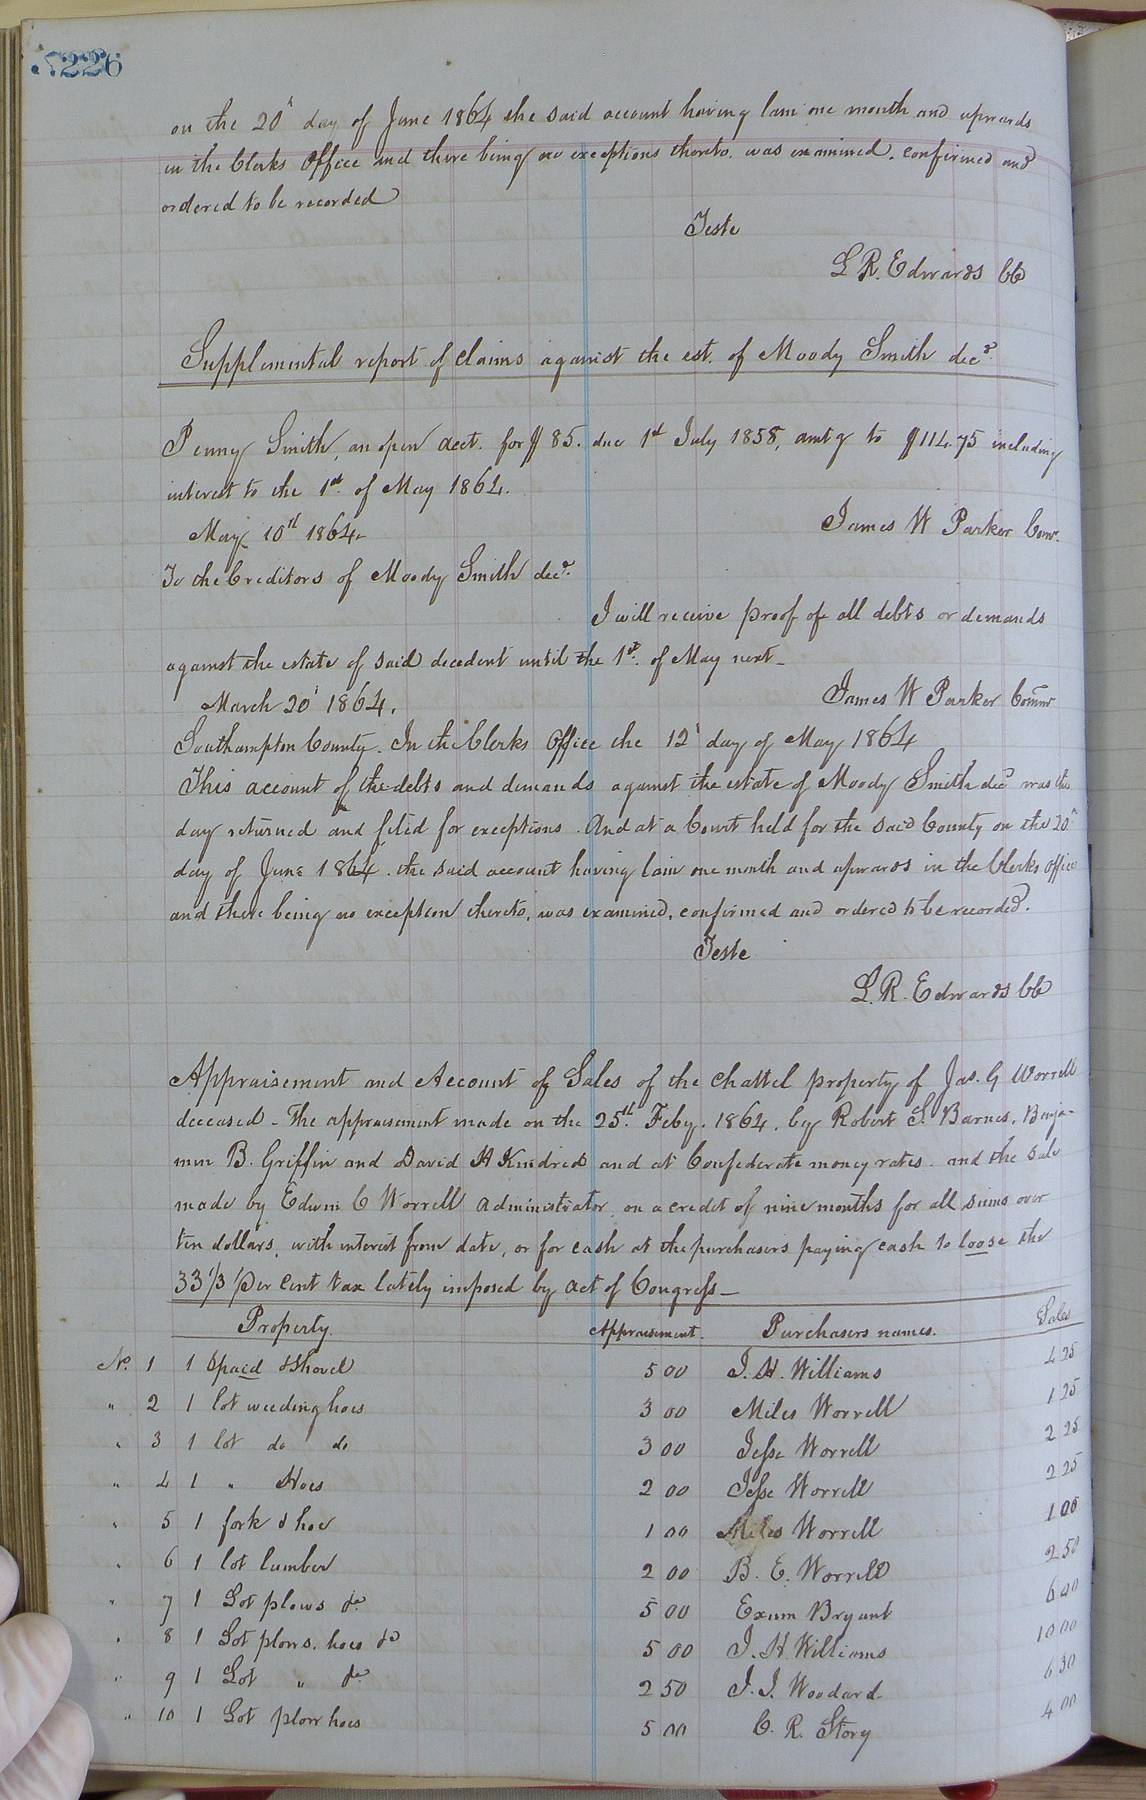 226
on the 20th day of June 1864 the said account having lain one month and upwards
in the Clerks Office and there being no exceptions thereto. was examined. confirmed and
ordered to be recorded
Teste
L R. Edwards CC
Supplemental report of Claims against the est. of Moody Smith decd.
Penny Smith, an open acct. for $85. due 1st July 1858, amtg to $114.75 including
interest to the 1st. of May 1864.
May 10th 1864
James W Parker Comr.
To the Creditors of Moody Smith decd.
I will receive proof of all debts or demands
against the estate of said decedent until the 1st. of May next
March 20th 1864.
James W Parker Commr
Southampton County. In the Clerks Office the 12th day of May 1864
This account of the debts and demands against the estate of Moody Smith decd was this
day returned and filed for exceptions. And at a Court held for the said County on the 20th
day of June 1864. the said account having lain one month and upwards in the Clerks office
and there being no exception thereto, was examined, confirmed and ordered to be recorded.
Teste
L. R. Edwards CC
Appraisement and Account of Sales of the chattel property of Jas. G Worrell
deceased - The appraisement made on the 25th. Feby. 1864. by Robert S. Barnes. Benja-
min B. Griffin and David H Kindred and at Confederate money rates. and the Sale
made by Edwin C Worrell Administrator on a credit of nine months for all sums over
ten dollars, with interest from date, or for cash at the purchasers paying cash to loose the
33 1/3 per cent tax lately imposed by act of Congress
Property. Appraisement. Purchasers names. Sales
No. 1 1 Spaid & Shovel 5 00 J. H. Williams 4 25
" 2 1 lot weeding hoes 3 00 Miles Worrell 1 25
" 3 1 lot do do 3 00 Jesse Worrell 2 25
" 4 1 " Hoes 2 00 Jesse Worrell 2 25
" 5 1 fork & hoe 1 00 Miles Worrell 1 00
" 6 1 lot lumber 2 00 B. E. Worrell 2 50
" 7 1 Lot plows &c 5 00 Exum Bryant 6 40
" 8 1 Lot plows. hoes &c 5 00 J. H. Williams 10 00
" 9 1 Lot " &c 2 50 J. J. Woodard 6 30
" 10 1 Lot plow hoes 5 00 C. R. Story 4 00